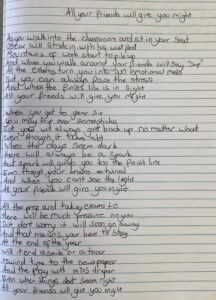 All your friends will give you might
As you walk into the classroom and sit in your seat
will stick in with his wolf
Mountains of work start to pile up
And when you walk around your friends will say "sup"
All the exams turn you into an emotional mess
But you can always face the stress
And when the finish line is in sight
All your friends will give you might
When you get to year six
You may trip over some sticks
But you will always get back up no matter what
even though it
When the days seem dark
There will always be a spark
That spark will guide you to the finish line
Even though your brains
And when you cant see the light
All your friend will give you might
All the prep and taking exams to
there will be much pressure on you
But don't worry it will soon go away
And that means your here to stay
At the end of the year
will lend a smile or a tear
rewind time to the newspaper
And the play with drper
Even when things dont seem right
All your friends will give you might